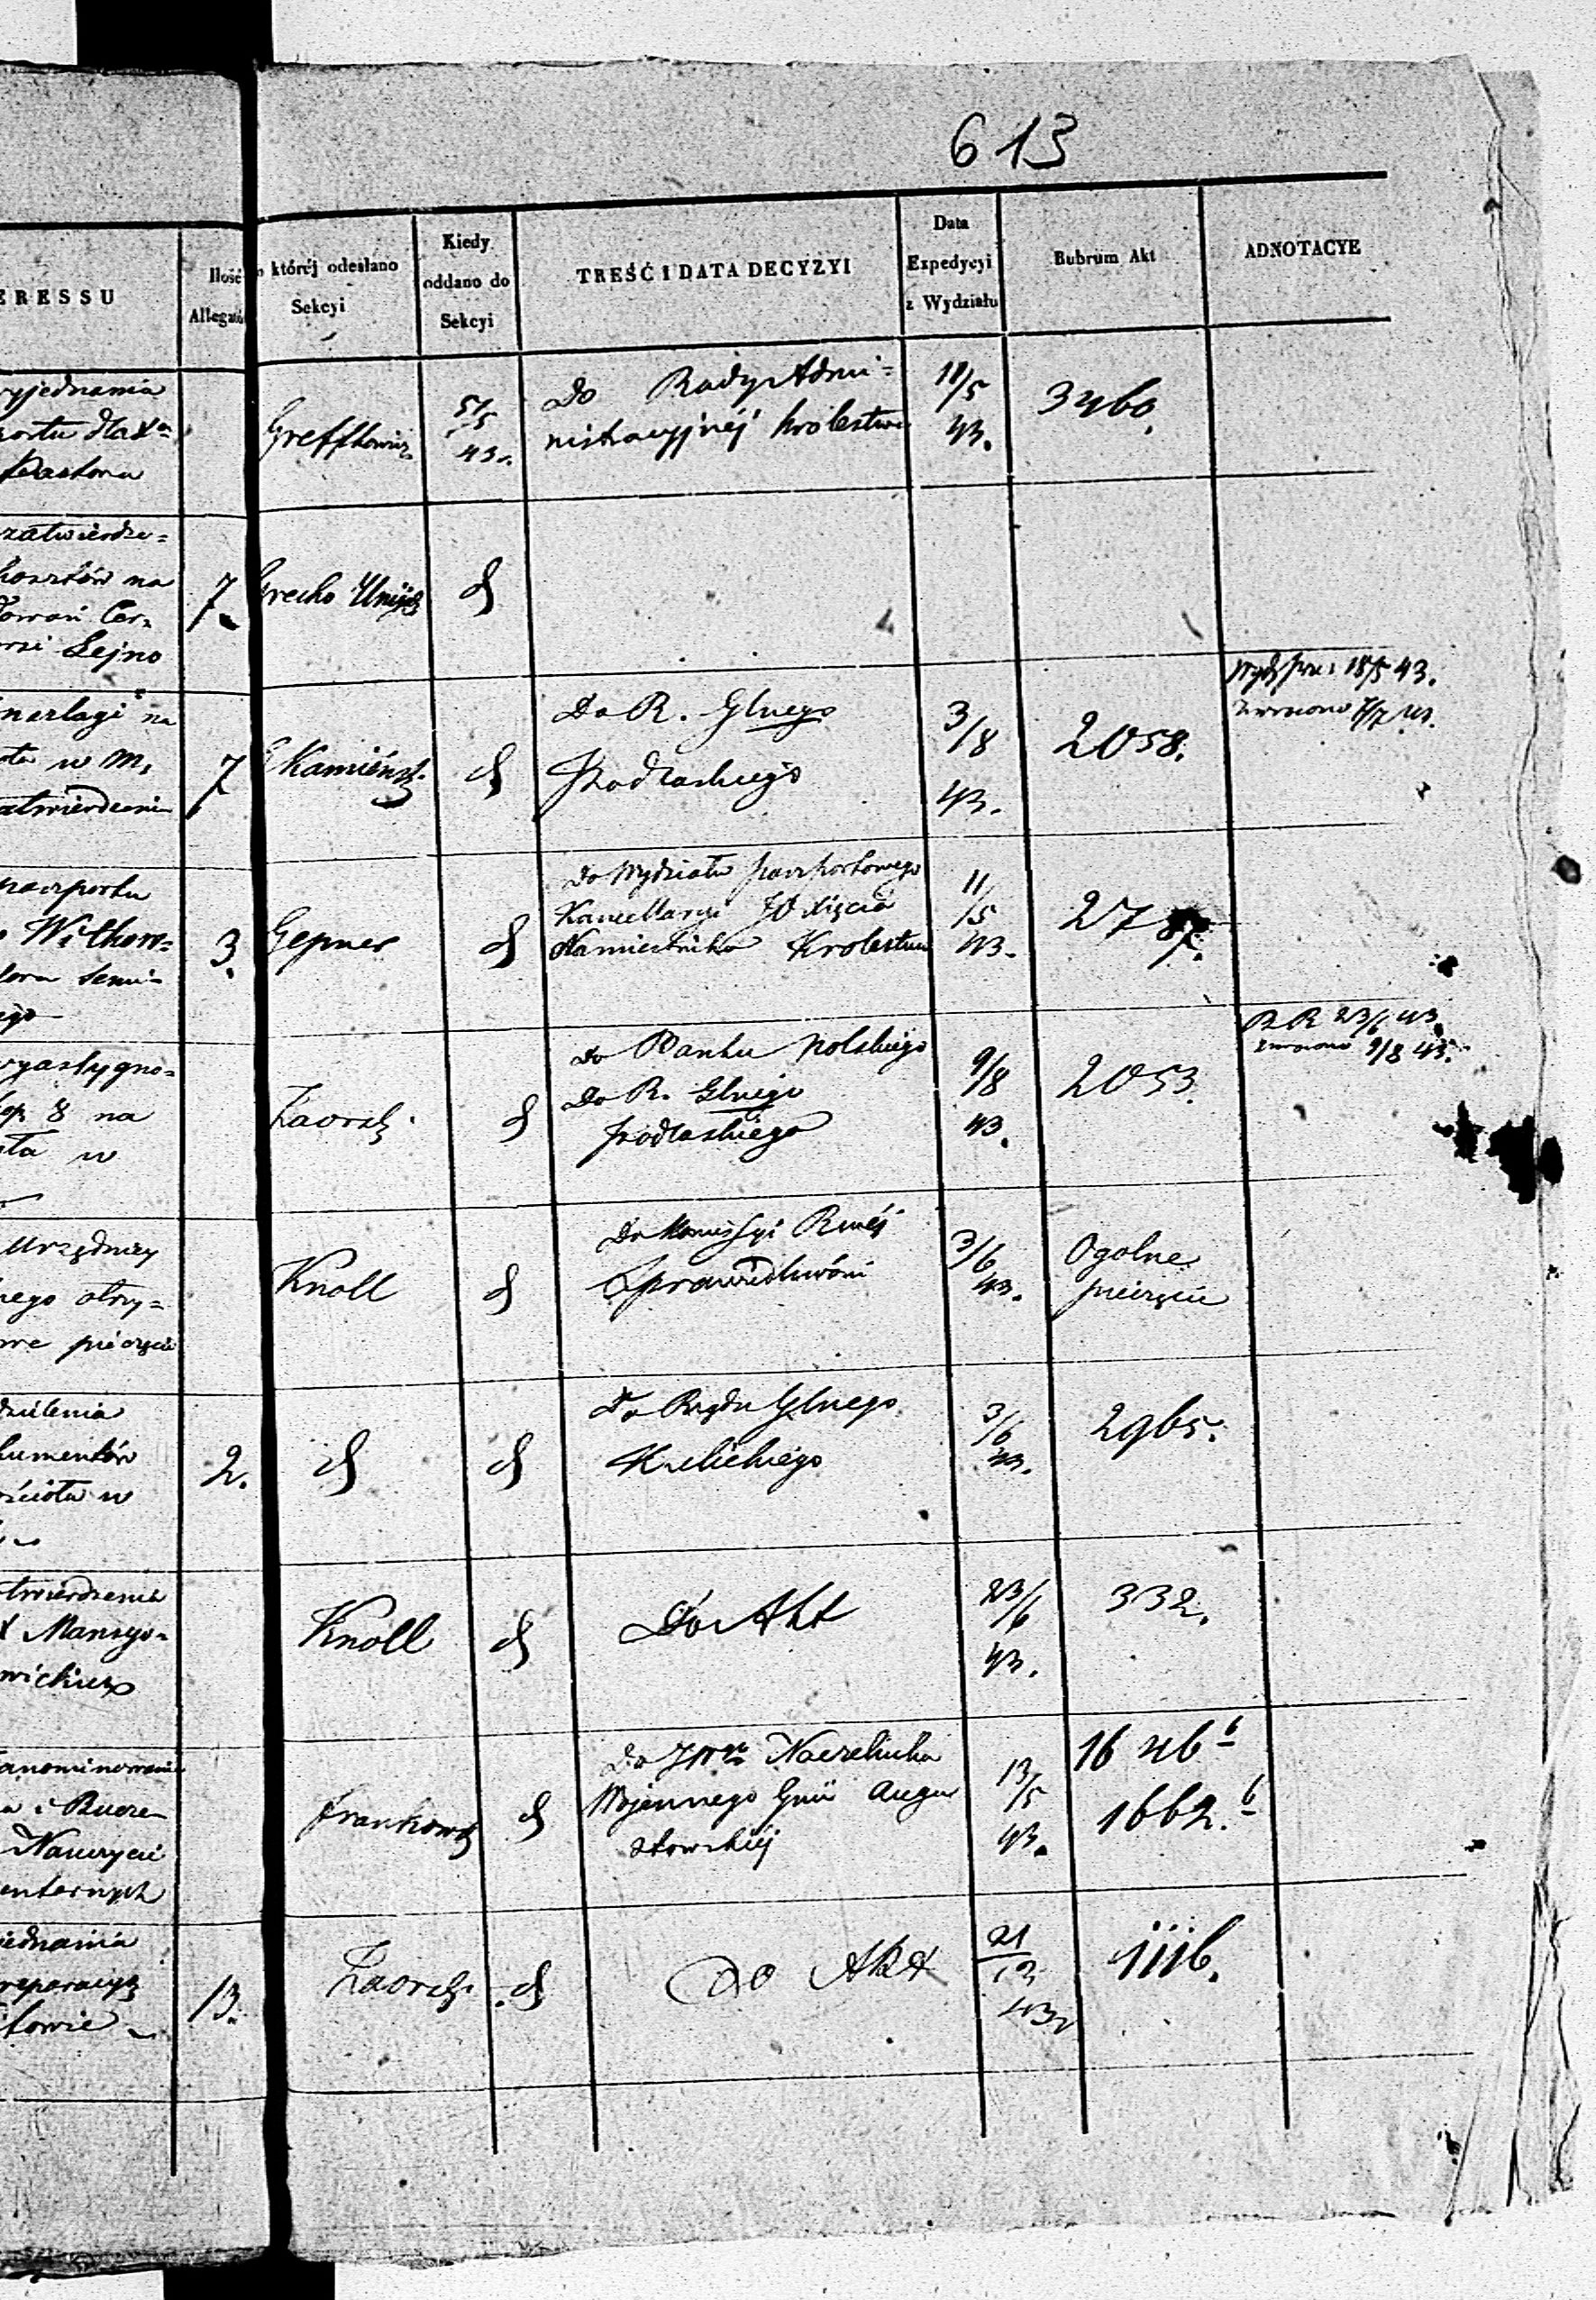 613
ERESSU
Ilość
Allegatów
której odesłano
Sekcyi
Kiedy
oddano do
Sekcyi
TREŚĆ I DATA DECYZYI
Data
Expedycyi
z Wydziału
Rubrum Akt
ADNOTACYE
yjednania
Pastora
5/5
43.
Do Rady Admi=
nistracyjnéj Królestwa
18/5
43.
3460.
zatwierdze=
kosztów na
Lejno
7.
Grecko Unijck
na
w M.
atwierdzenia
7
Kamińsk.
Do R. Glnego
Podlaskiego
3/8
43.
2058.
18/5 43.
zwrócono 7/7 43.
paszportu
Witkow=
semi=
ego
3.
Gepner
Do Wydziału paszportowego
Kancellaryi JO Xięcia
Namiestnika Królestwa
11/5
43.
278
wyassygno=
kop. 8 na
w
Zaorsk.
Do Banku Polskiego
Do R. Glnego
Podlaskiego
9/8
43.
2053.
R R 23/6 43.
zwrócono 9/8 43.
Urzędnicy
nego otrzy=
pieczęcie
Knoll
Do Komissyi Rwéj
Sprawiedliwości
3/6
43.
Ogólne
pieczęcie
dzielenia
kumentów
ościoła w
2.
Do Rządu Glnego
Kieleckiego
3/6
43.
2965.
twierdzenia
X Mansyo=
wickiego
Knoll
Do Akt
23/6
43.
332.
anominowania
i Rucze=
Nauczycieli
entarnych
Frankowsk
Do JWo Naczelnika
Wojennego Gnii Augu
stowskiéj
13/5
43.
1646 b
1662. b
jednania
reparacyą
towie
13.
Zaorsk.
Do Akt
21/12
43
1116.